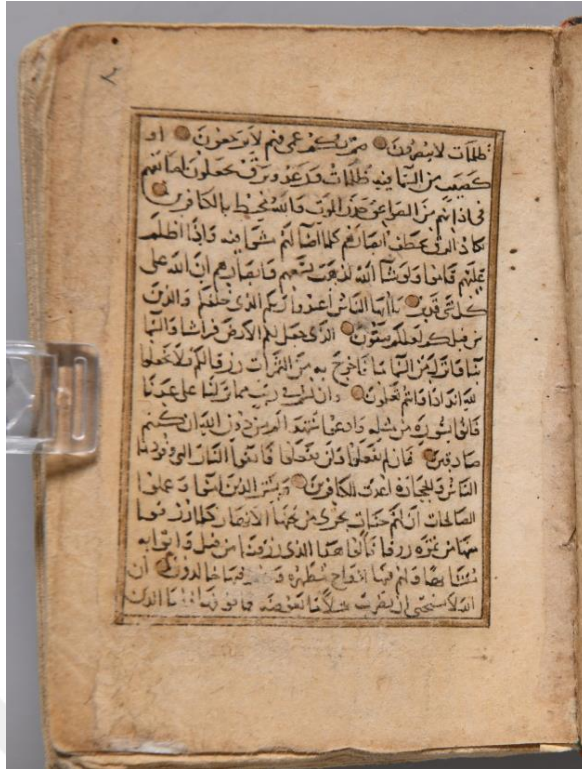 ٢
ظلمات لا يبصرون صم بكم عمى فهم لا يرجعون او
كصيب من السما فيه ظلمات ورعد وبرق يجعلون اصابعهم
فى اذانهم من الصواعق حذر الموت والله محيط بالكافرين
يكاد البرق يخطف ابصارهم كلما اضا لهم مشوا فيه واذا اظلم
عليهم قاموا ولو شا الله لذهب بسمعهم وابصارهم ان الله على
كل شى قدير يا ايها الناس اعبدوا ربكم الذى خلقكم والذين
من قبلكم لعلكم تتقون الذى جعل لكم الارض فراشا والسما
بنا وانزل من السما ما فاخرج به من الثمرات رزقا لكم فلا تجعلوا
لله اندادا وانتم تعلمون وان كنتم فى ريب مما نزلنا على عبدنا
فاتوا بسورة من مثله وادعوا شهداكم من دون الله ان كنتم
صادقين فان لم تفعلوا ولن تفعلوا فاتقوا النار التى وقودها
الناس والحجارة اعدت للكافرين وبشر الذين امنوا وعملوا
الصالحات ان لهم جنات تجرى من تحتها الانهار كلما رزقوا
منها من ثمرة رزقا قالوا هذا الذى رزقنا من قبل واتوا به
متشابها ولهم فيها ازواج مطهرة وهم فيها خالدون ان
الله لا يستحيى ان يضرب مثلا ما بعوضة فما فوقها فاما الذين